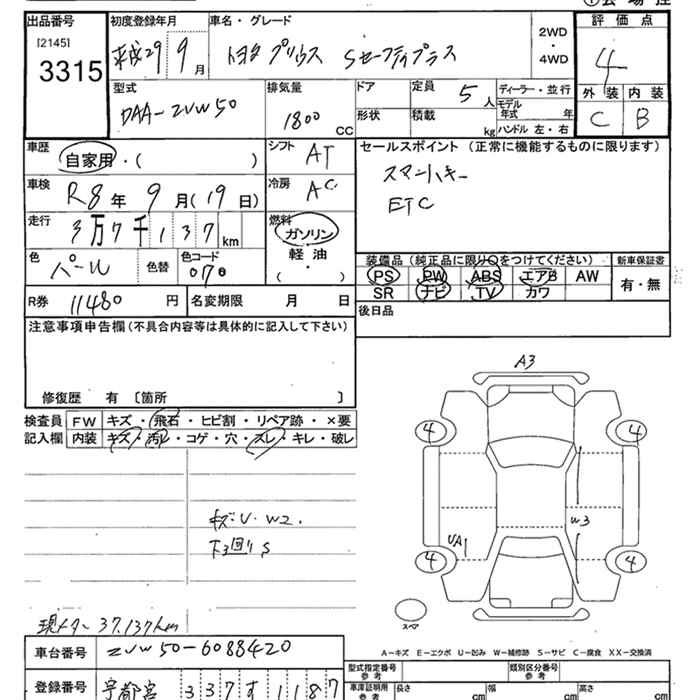 出品番号 初度登録年月 車名・グレード 2WD・4WD 評価点
[2145]
3315 平成29年9月 トヨタ プリウス Sセーフティプラス 4
型式 排気量 ドア 定員 5人 ディーラー・並行 外装 内装
DAA-ZVW50 1800 CC 形状 積載 kg モデル年式 年 C B
ハンドル 左・右
車歴 自家用・( ) シフト AT セールスポイント (正常に機能するものに限ります)
車検 R8年9月(19日) 冷房 AC スマートキー
走行 3万7千137km 燃料 ガソリン ETC
軽油
( )
色 パール 色替 色コード 070 装備品 (純正品に限り○をつけてください) 新車保証書
PS PW ABS エアB AW 有・無
R券 11480円 名変期限 月 日 SR ナビ TV カワ
注意事項申告欄(不具合内容等は具体的に記入して下さい) 後日品
修復歴 有 〔箇所 〕
検査員 FW キズ・飛石・ヒビ割・リペア跡・×要
記入欄 内装 キズ・汚レ・コゲ・穴・スレ・キレ・破レ
A3
4 4
キズ・U・W2.
下3回りS
W3
UA
4 4
スペア
現メーター 37.137km
A-キズ E-エクボ U-凹み W-補修跡 S-サビ C-腐食 XX-交換済
車台番号 ZVW50-6088420
型式指定番号 参考 類別区分番号 参考
登録番号 宇都宮 337す1187
車庫証明用 参考 長さ cm 幅 cm 高さ cm